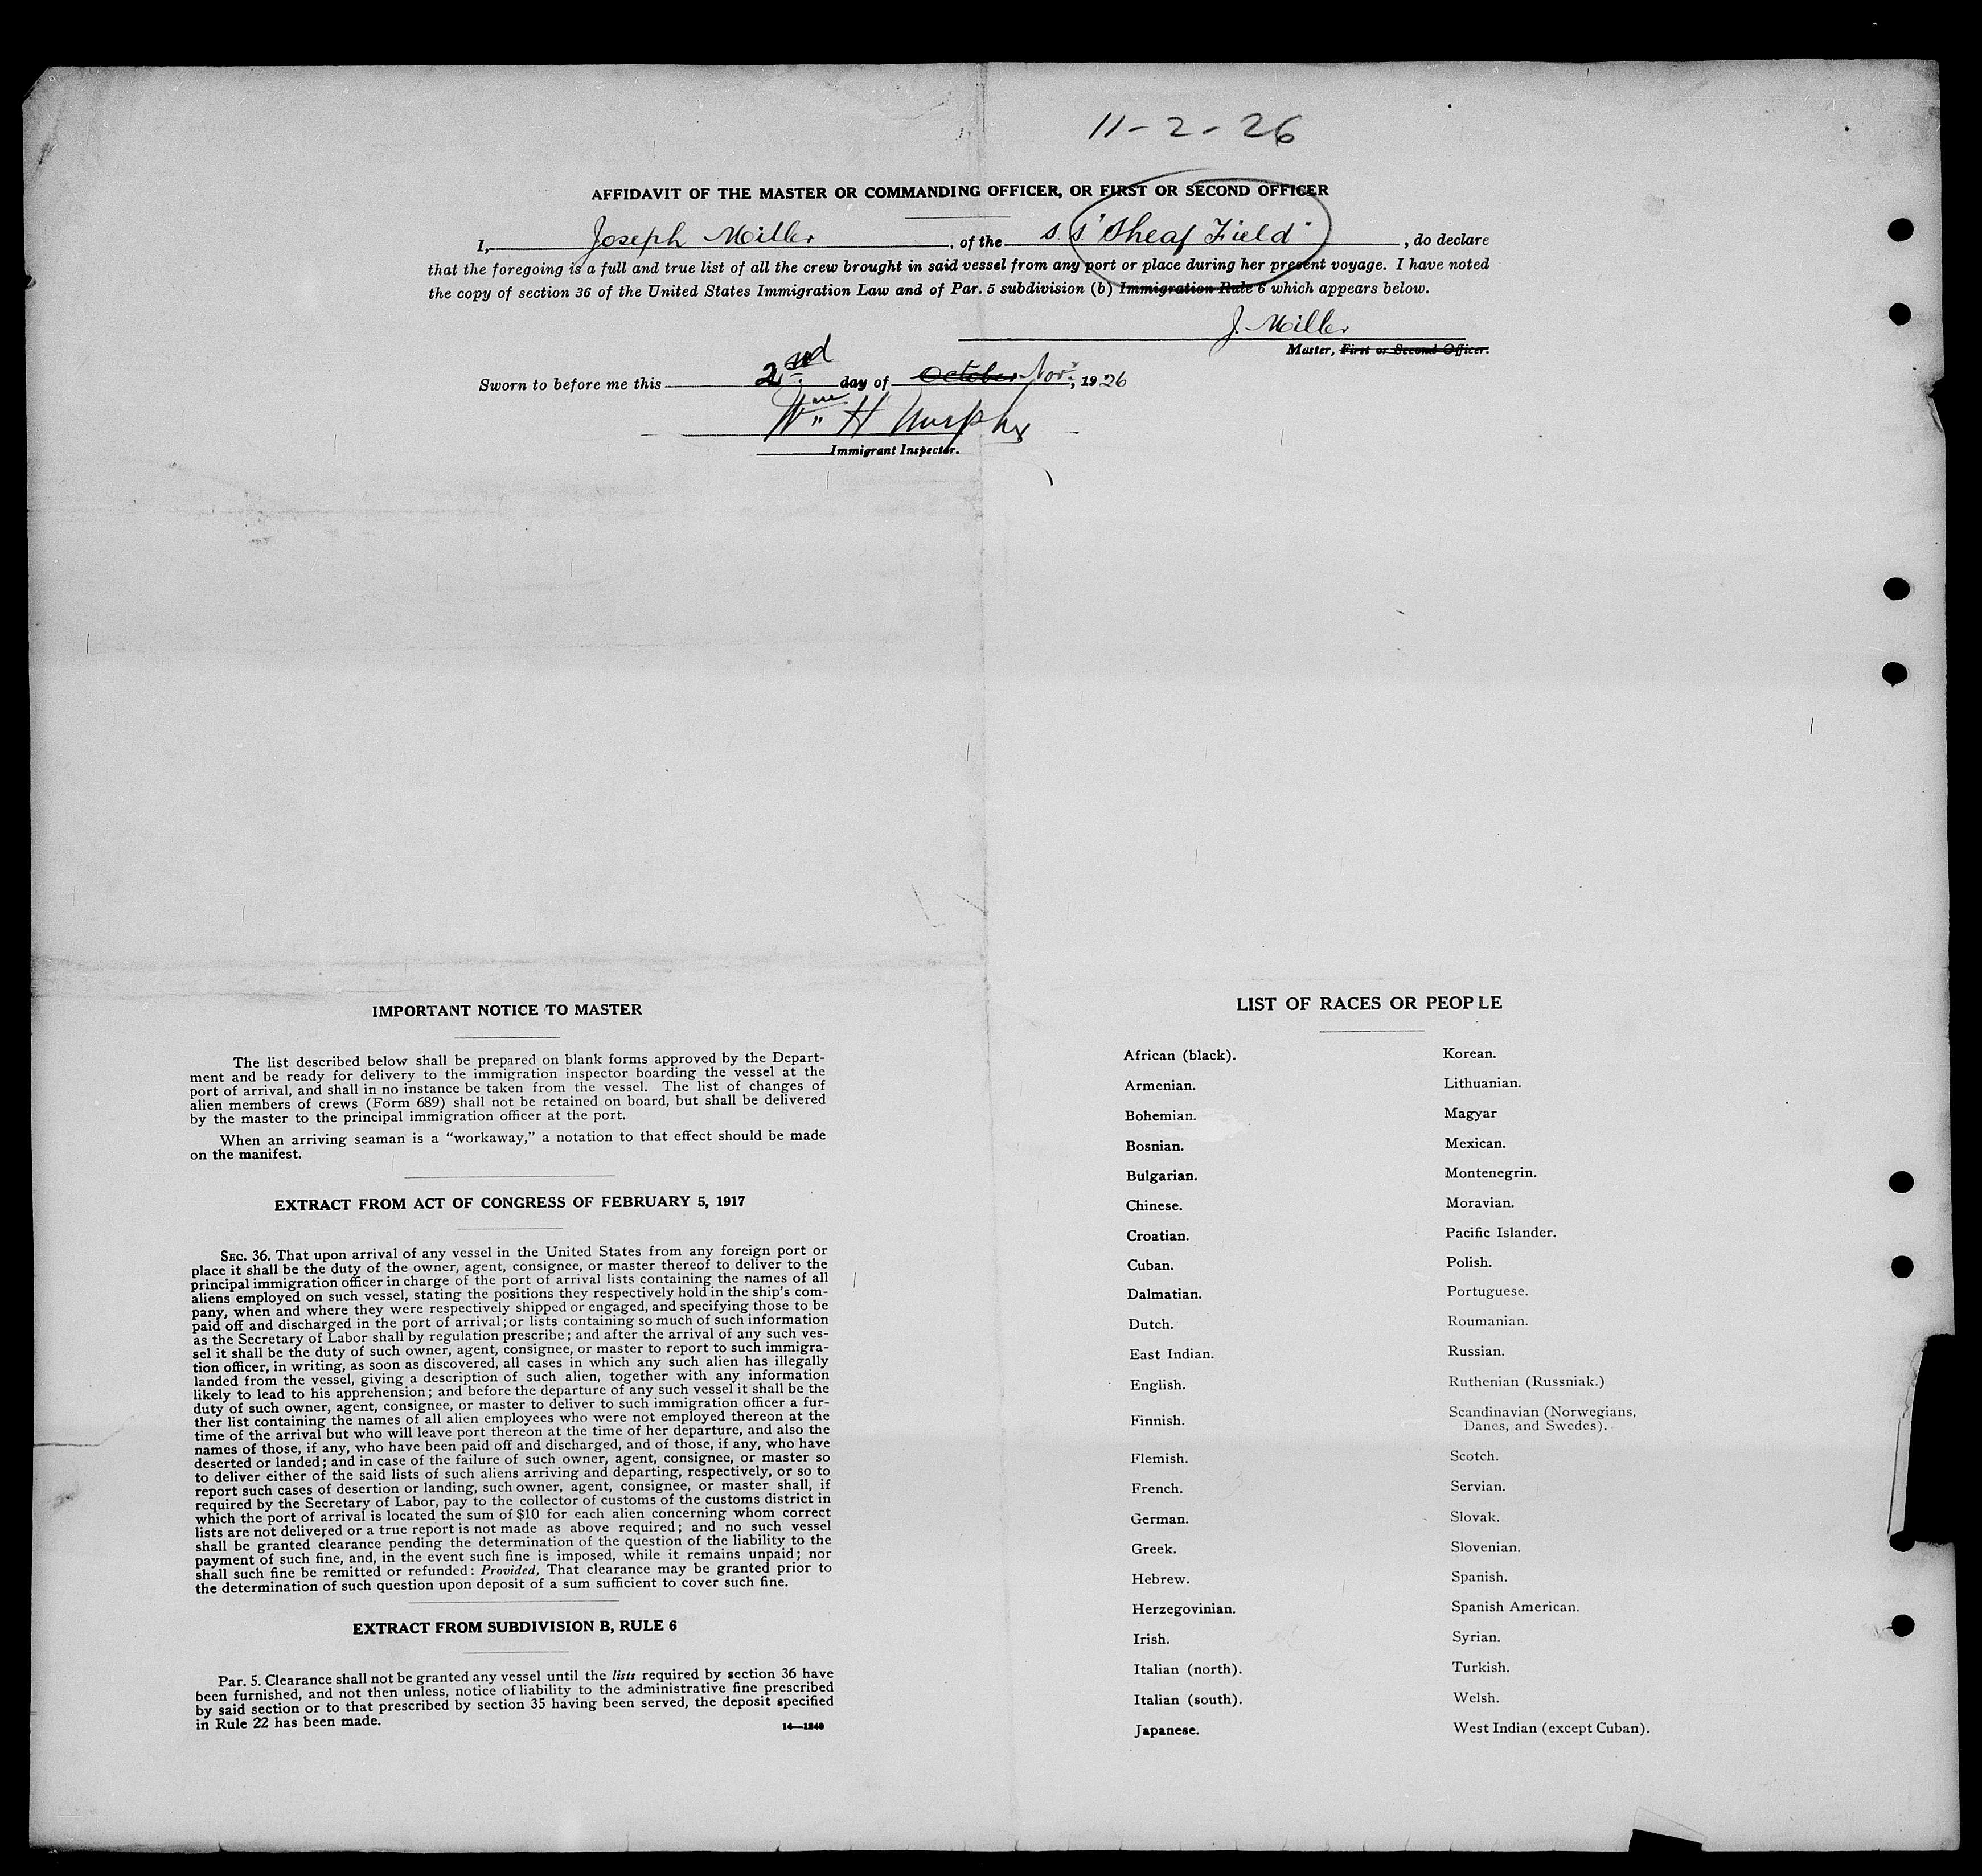 11-2-26
AFFIDAVIT OF THE MASTER OR COMMANDING OFFICER, OR FIRST OR SECOND OFFICER
I, Joseph Miller, of the S.S. "Sheaf Field", do declare
that the foregoing is a full and true list of all the crew brought in said vessel from any port or place during her present voyage. I have noted
the copy of section 36 of the United States Immigration Law and of Par. 5 subdivision (b) Immigration Rule 6 which appears below.
J. Miller
Master, First or Second Officer.
Sworn to before me this 2nd day of October Nov., 1926
Wm H Murphy
Immigrant Inspector.
IMPORTANT NOTICE TO MASTER
The list described below shall be prepared on blank forms approved by the Depart-
ment and be ready for delivery to the immigration inspector boarding the vessel at the
port of arrival, and shall in no instance be taken from the vessel. The list of changes of
alien members of crews (Form 689) shall not be retained on board, but shall be delivered
by the master to the principal immigration officer at the port.
When an arriving seaman is a "workaway," a notation to that effect should be made
on the manifest.
EXTRACT FROM ACT OF CONGRESS OF FEBRUARY 5, 1917
SEC. 36. That upon arrival of any vessel in the United States from any foreign port or
place it shall be the duty of the owner, agent, consignee, or master thereof to deliver to the
principal immigration officer in charge of the port of arrival lists containing the names of all
aliens employed on such vessel, stating the positions they respectively hold in the ship's com-
pany, when and where they were respectively shipped or engaged, and specifying those to be
paid off and discharged in the port of arrival; or lists containing so much of such information
as the Secretary of Labor shall by regulation prescribe; and after the arrival of any such ves-
sel it shall be the duty of such owner, agent, consignee, or master to report to such immigra-
tion officer, in writing, as soon as discovered, all cases in which any such alien has illegally
landed from the vessel, giving a description of such alien, together with any information
likely to lead to his apprehension; and before the departure of any such vessel it shall be the
duty of such owner, agent, consignee, or master to deliver to such immigration officer a fur-
ther list containing the names of all alien employees who were not employed thereon at the
time of the arrival but who will leave port thereon at the time of her departure, and also the
names of those, if any, who have been paid off and discharged, and of those, if any, who have
deserted or landed; and in case of the failure of such owner, agent, consignee, or master so
to deliver either of the said lists of such aliens arriving and departing, respectively, or so to
report such cases of desertion or landing, such owner, agent, consignee, or master shall, if
required by the Secretary of Labor, pay to the collector of customs of the customs district in
which the port of arrival is located the sum of $10 for each alien concerning whom correct
lists are not delivered or a true report is not made as above required; and no such vessel
shall be granted clearance pending the determination of the question of the liability to the
payment of such fine, and, in the event such fine is imposed, while it remains unpaid; nor
shall such fine be remitted or refunded: Provided, That clearance may be granted prior to
the determination of such question upon deposit of a sum sufficient to cover such fine.
EXTRACT FROM SUBDIVISION B, RULE 6
Par. 5. Clearance shall not be granted any vessel until the lists required by section 36 have
been furnished, and not then unless, notice of liability to the administrative fine prescribed
by said section or to that prescribed by section 35 having been served, the deposit specified
in Rule 22 has been made.
14—1240
LIST OF RACES OR PEOPLE
African (black).
Armenian.
Bohemian.
Bosnian.
Bulgarian.
Chinese.
Croatian.
Cuban.
Dalmatian.
Dutch.
East Indian.
English.
Finnish.
Flemish.
French.
German.
Greek.
Hebrew.
Herzegovinian.
Irish.
Italian (north).
Italian (south).
Japanese.
Korean.
Lithuanian.
Magyar
Mexican.
Montenegrin.
Moravian.
Pacific Islander.
Polish.
Portuguese.
Roumanian.
Russian.
Ruthenian (Russniak.)
Scandinavian (Norwegians,
Danes, and Swedes).
Scotch.
Servian.
Slovak.
Slovenian.
Spanish.
Spanish American.
Syrian.
Turkish.
Welsh.
West Indian (except Cuban).